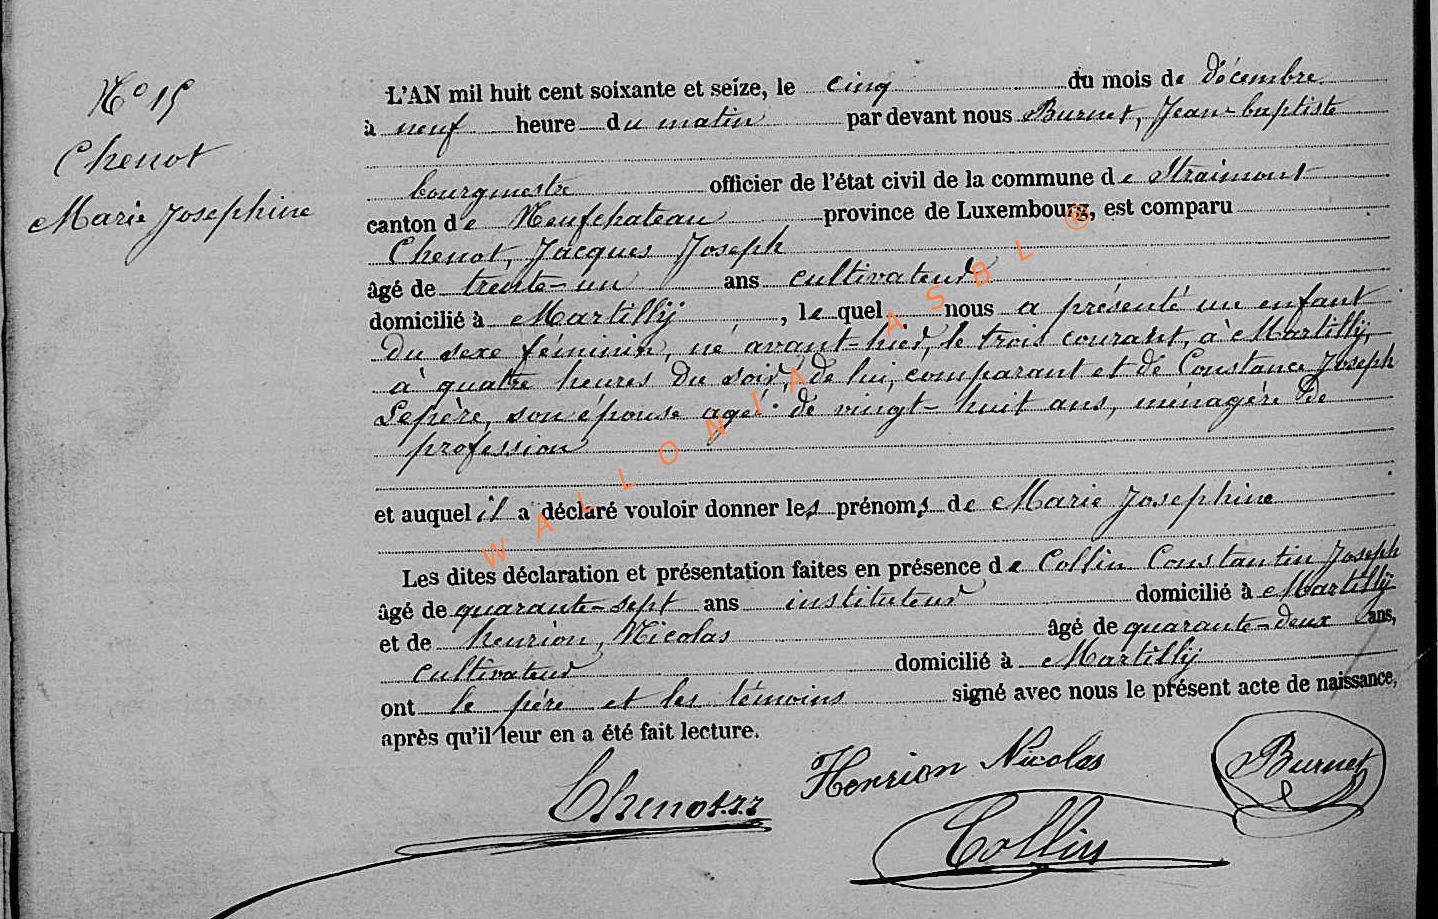 N° 15
Chenot
Marie Josephine
L'AN mil huit cent soixante et seize, le cinq du mois de décembre
à neuf heure du matin par devant nous Burnet, Jean-baptiste
bourgmestre officier de l'état civil de la commune de Straimont
canton de Neufchateau province de Luxembourg, est comparu
Chenot, Jacques Joseph
âgé de trente-un ans cultivateur
domicilié à Martilly, le quel nous a présenté un enfant
du sexe féminin, né avant-hier, le trois courant, à Martilly,
à quatre heures du soir, de lui, comparant et de Constance Joseph
Lepère, son épouse agée de vingt-huit ans, ménagère de
profession
et auquel il a déclaré vouloir donner les prénoms de Marie Josephine
Les dites déclaration et présentation faites en présence de Collin Constantin Joseph
âgé de quarante-sept ans instituteur domicilié à Martilly
et de henrion, Nicolas âgé de quarante-deux ans,
cultivateur domicilié à Martilly
ont le père et les témoins signé avec nous le présent acte de naissance,
après qu'il leur en a été fait lecture.
Chenot Henrion Nicolas Burnet
Collin
WALLONIA ASBL ®